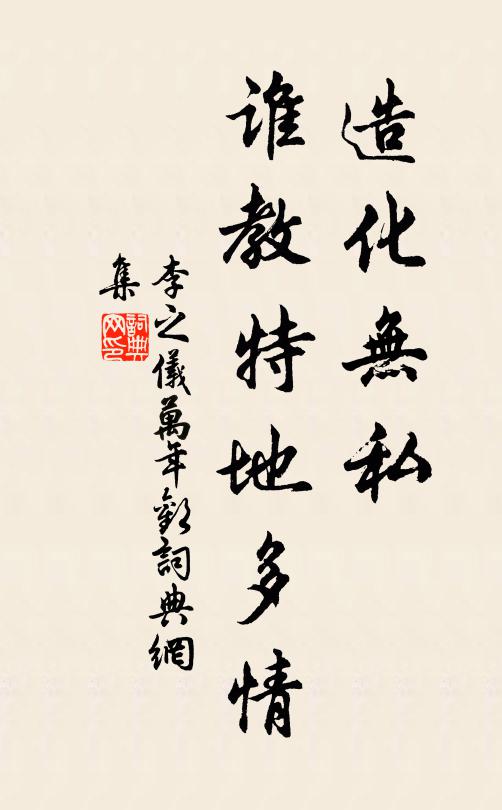 造化無私
誰教特地多情
李之儀萬年歡詞典網
集
詞典
网印